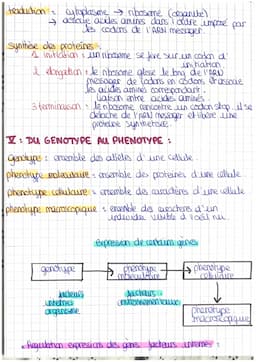 traduction : cytoplasme → ribosome (organite)
→ associe acides aminés dans l'ordre imposé par
les codons de l'ARN messager.
synthèse des protéines :
1. initiation : un ribosome se fixe sur un codon d'
initiation
2. élongation : le ribosome glisse le long de l'ARN
messager de codons en codons et associe
les acides aminés correspondant.
liaison entre acides aminés.
3. terminaison : le ribosome rencontre un codon stop, il se
détache de l'ARN messager et libère une
protéine synthétisée.
V : DU GENOTYPE AU PHENOTYPE :
génotype : ensemble des allèles d'une cellule.
phénotype moléculaire : ensemble des protéines d'une cellule.
phénotype cellulaire : ensemble des caractères d'une cellule
phénotype macroscopique : ensemble des caractères d'un
individu visible à l'œil nu.
expression de certains gènes
génotype → phénotype moléculaire → phénotype cellulaire
facteurs internes organisme
facteurs environnementaux
phénotype macroscopique
Régulation expressions des gènes facteurs internes :